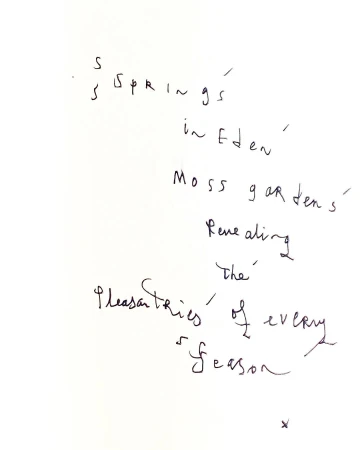 S
S Springs'
in Eden'
Moss gardens'
Revealing
the'
Pleasantries' of every
season
x